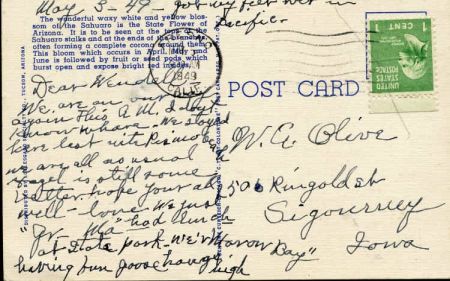 May 3-49- got my feet wet in
Pacific.
The wonderful waxy white and yellow blos-
som of the Sahuaro is the State Flower of
Arizona. It is to be seen at the tops of the
Sahuaro stalks and at the ends of the branches,
often forming a complete corona around them.
This bloom which occurs in April, May and
June is followed by fruit or seed pods which
burst open and expose bright red inside.
MAY
1949
CALIF.
1 CENT
UNITED STATES
POSTAGE
POST CARD
Dear Wendell
We are on our
again this A.M. I don't
know where. We stayed
here last nite
we are all as usual
is still some
better. hope your all
well - love. We just
"Ma" had lunch
at State park. We're
"Bay"
having fun goose hang high
W. A. Olive
506 Ringold st
Sigourney
Iowa